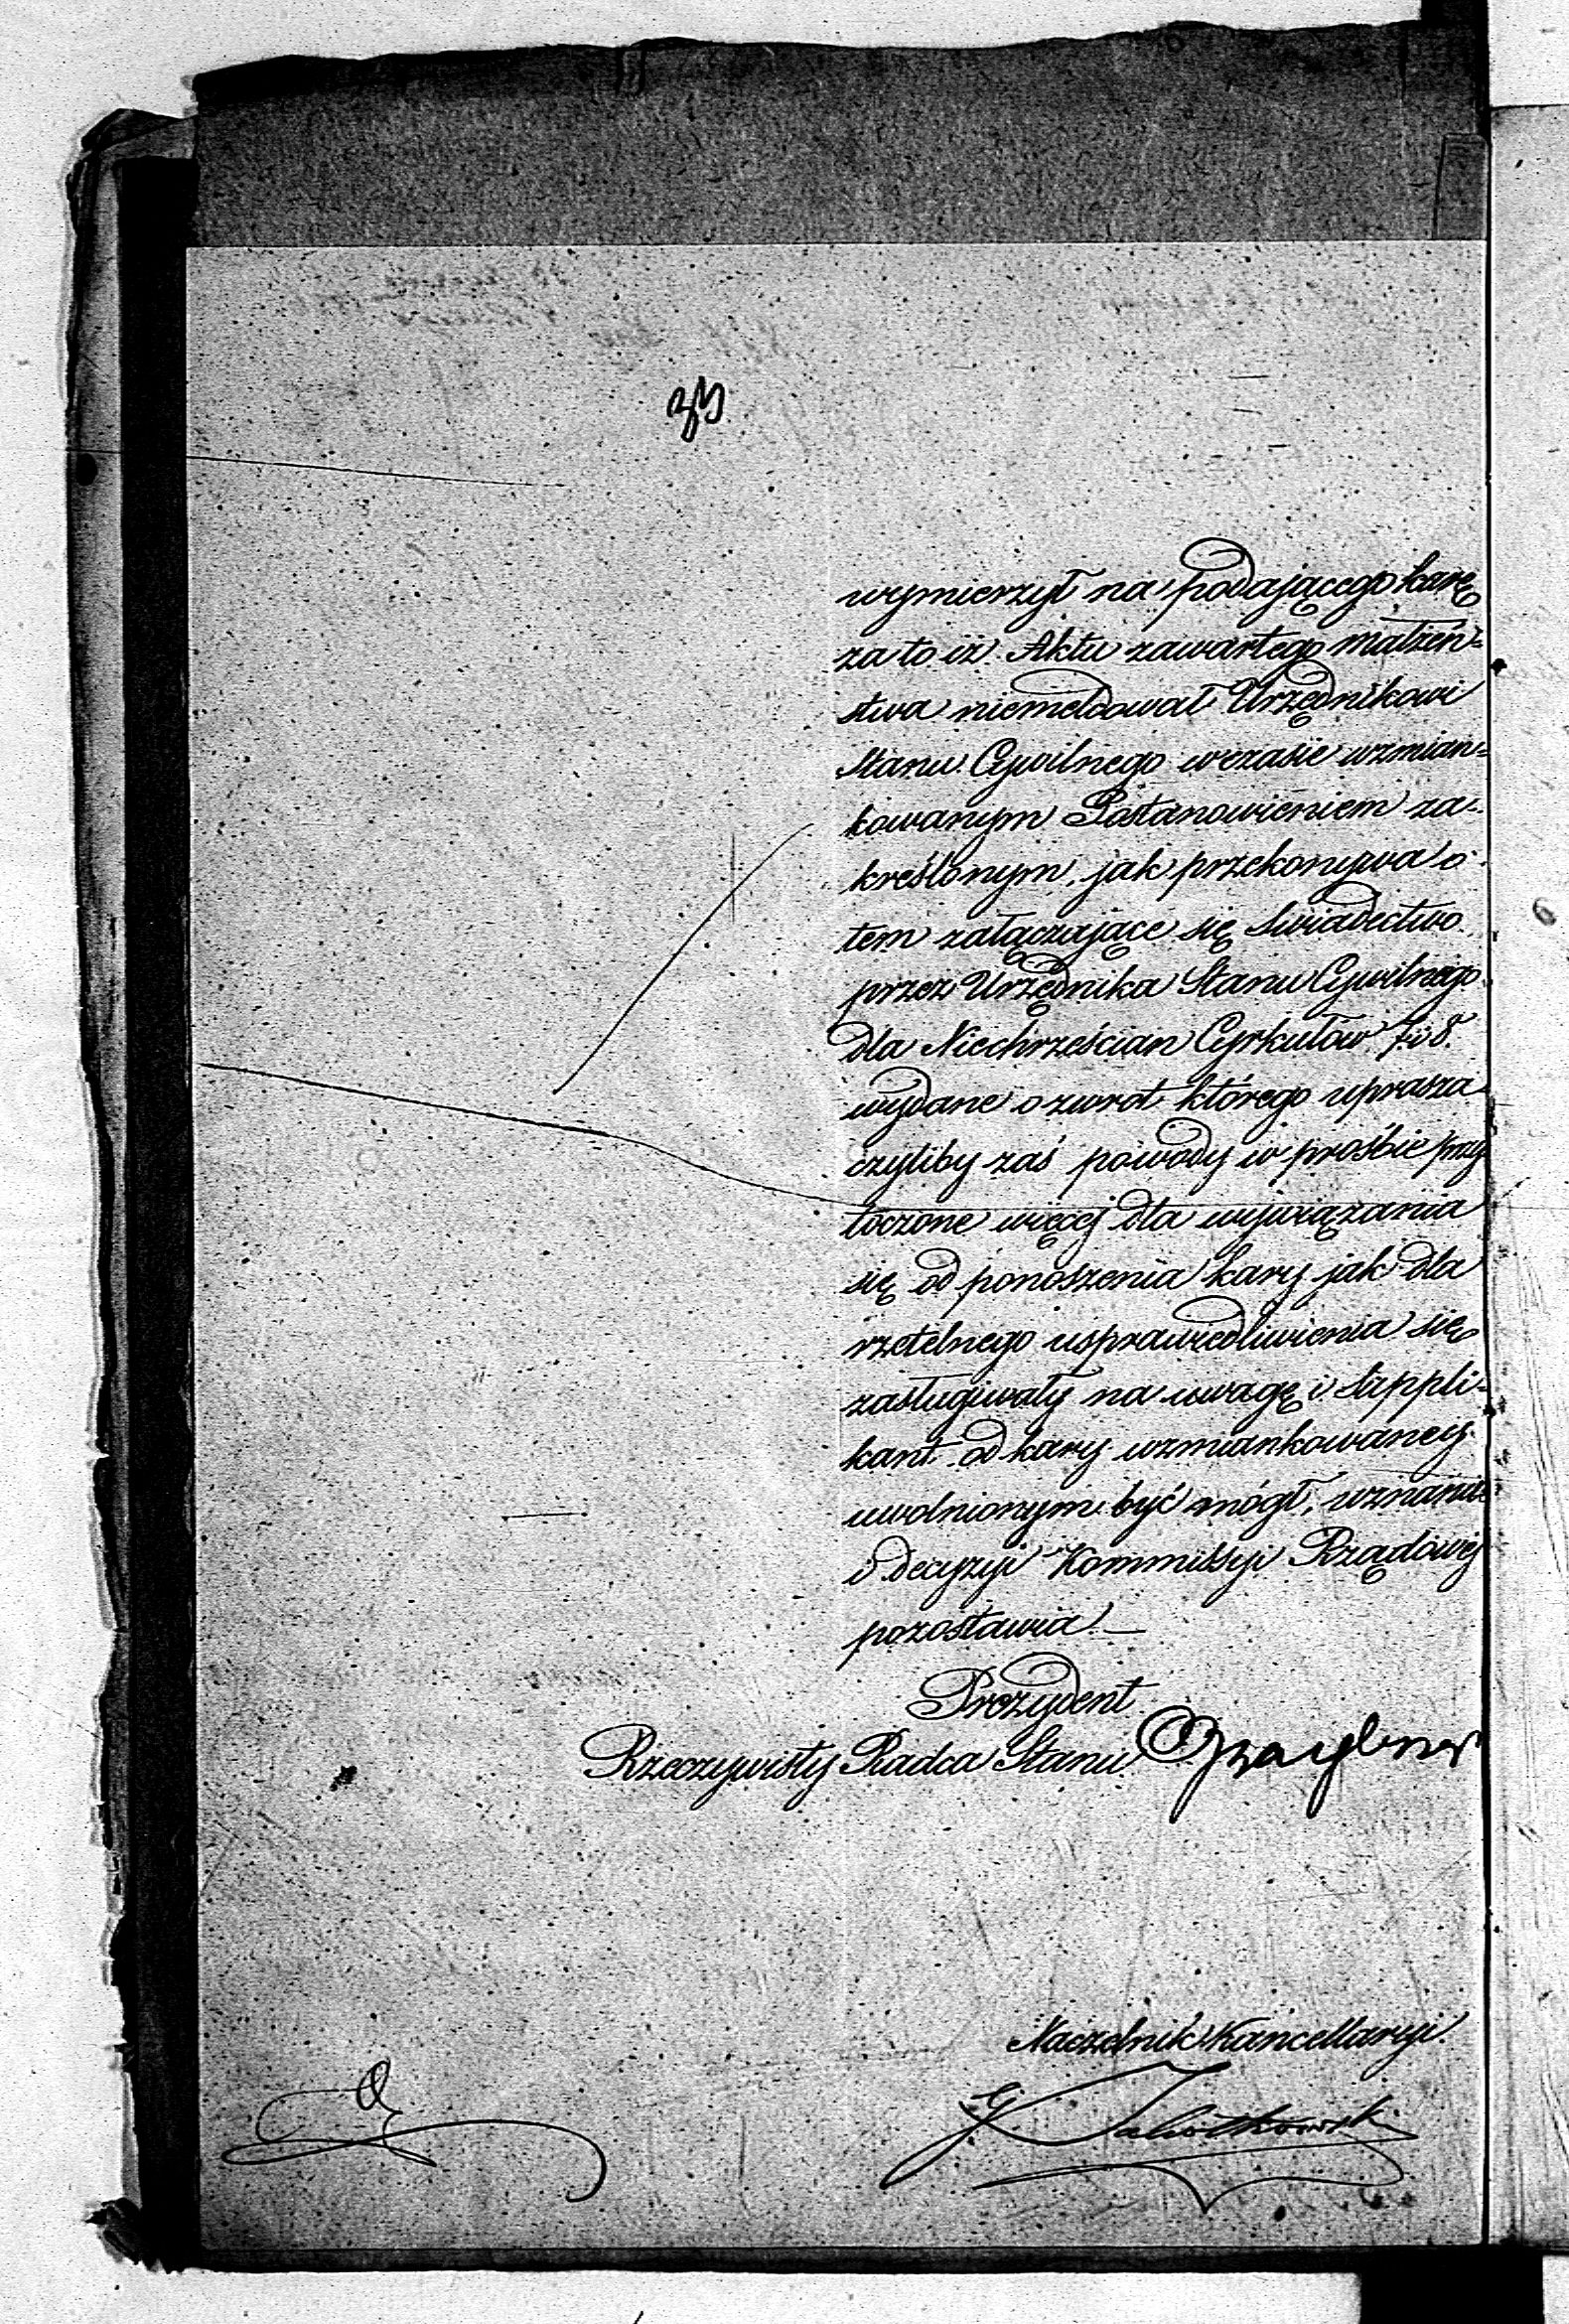 wymierzył na podającego karę
za to iż Aktu zawartego małżeń=
stwa niemeldował Urzędnikowi
Stanu Cywilnego wczasie wzmian=
kowanym Postanowieniem za=
kreślonym, jak przekonywa o
tem załączające się świadectwo
przez Urzędnika Stanu Cywilnego
dla Niechrześcian Cyrkułów 7. i 8.
wydane o zwrot którego uprasza
czyliby zaś powody w prośbie przy
toczone więcej dla wywiązania
się od ponoszenia kary jak dla
rzetelnego usprawiedliwienia się
zasługiwały na uwagę i suppli=
kant od kary wzmiankowaney
uwolnionym być mógł, uznaniu
i decyzyi Kommissyi Rządowéj
pozostawia. —
Prezydent
Rzeczywisty Radca Stanu
Naczelnik Kancellaryi.